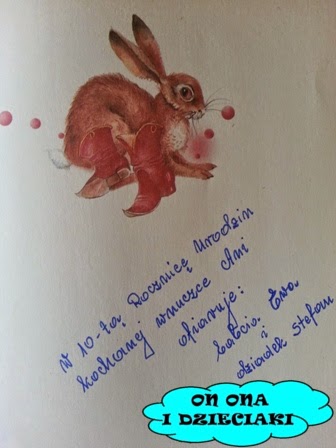 w 10-tą Rocznicę Urodzin
kochanej wnuczce Ani
ofiaruje:
babcia Ewa
i
dziadek Stefan
ON ONA
I DZIECIAKI